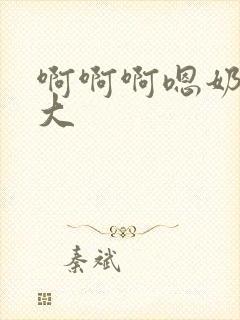 啊啊啊嗯奶
大
秦斌